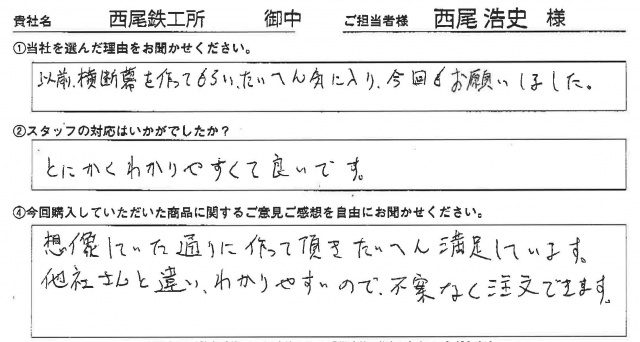 貴社名 西尾鉄工所 御中 ご担当者様 西尾 浩史 様
①当社を選んだ理由をお聞かせください。
以前、横断幕を作ってもらい、たいへん気に入り、今回もお願いしました。
②スタッフの対応はいかがでしたか？
とにかくわかりやすくて良いです。
④今回購入していただいた商品に関するご意見ご感想を自由にお聞かせください。
想像していた通りに作って頂きたいへん満足しています。
他社さんと違い、わかりやすいので、不案なく注文できます。